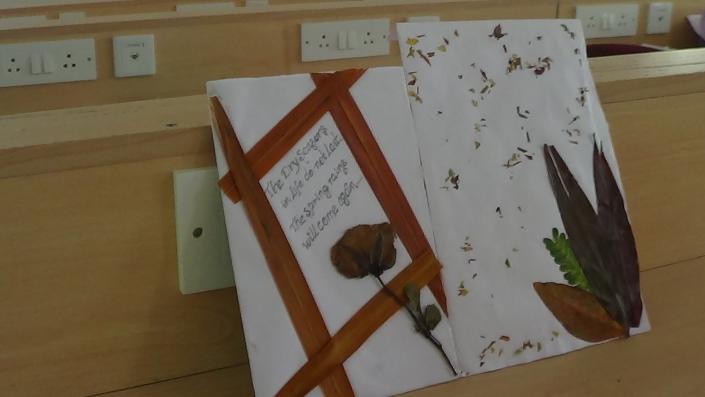 The Dry Seasons
in life do not last.
The Spring rains
will come again...